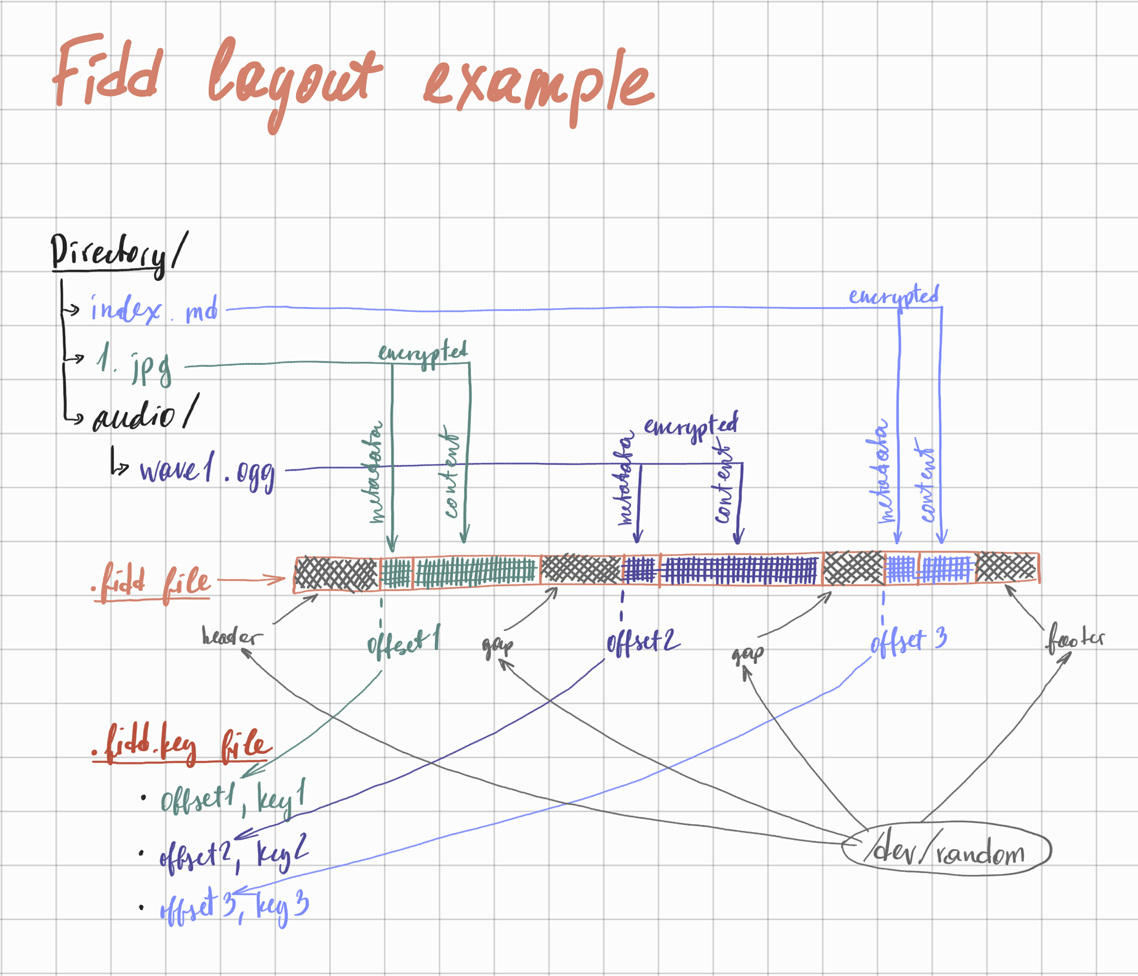 Fidd layout example
Directory/
index.md
encrypted
1.jpg
encrypted
audio/
wave1.ogg
encrypted
metadata
content
metadata
content
metadata
content
.fidd file
header
offset1
gap
offset2
gap
offset 3
footer
.fidd.key file
· offset1, key1
· offset2, key2
· offset 3, key 3
/dev/random